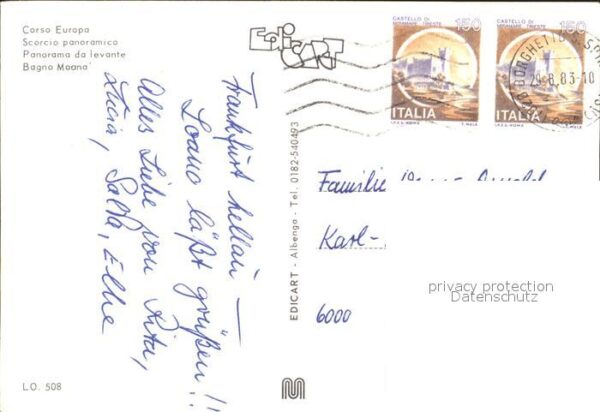 Corso Europa
Scorcio panoramico
Panorama da levante
Bagno Moana'
Frankfurt hellau —
Loano läßt grüßen!!
Alles Liebe von Rita,
Luzia, Elke
L.O. 508
EDICART - Albenga - Tel. 0182-540493
edi CART
CASTELLO DI
MIRAMARE-TRIESTE
150
ITALIA
I.P.Z.S.-ROMA
E. MELE
CASTELLO DI
MIRAMARE-TRIESTE
150
ITALIA
I.P.Z.S.-ROMA
E. MELE
BORGHETTO S. SPIR
29.8.83-10
Familie
Karl-
6000
privacy protection
Datenschutz